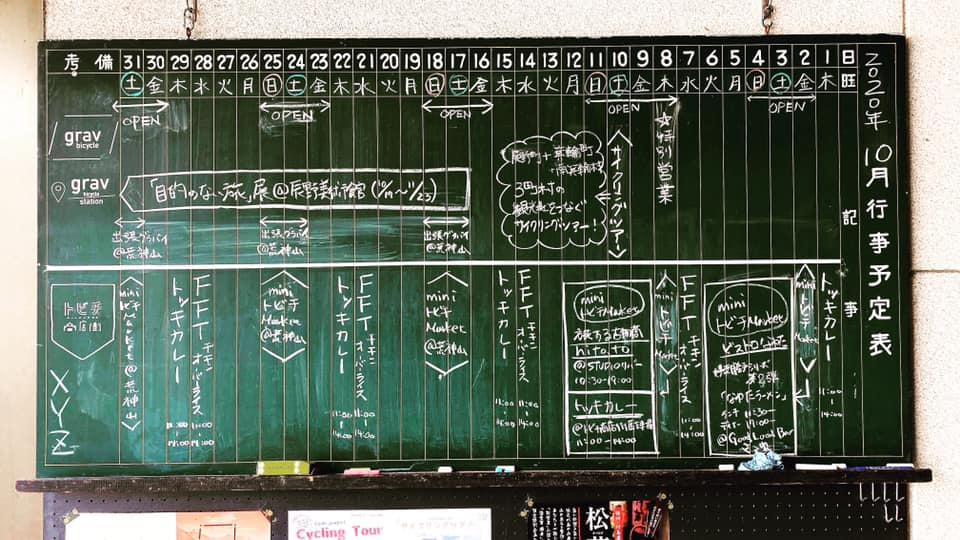 2020年 10月行事予定表
考 備 31 30 29 28 27 26 25 24 23 22 21 20 19 18 17 16 15 14 13 12 11 10 9 8 7 6 5 4 3 2 1 日
土 金 木 水 火 月 日 土 金 木 水 火 月 日 土 金 木 水 火 月 日 土 金 木 水 火 月 日 土 金 木 曜
記
事
OPEN
OPEN
OPEN
OPEN
OPEN
☆特別営業
grav
bicycle
サイクリングツアー
3町村の
観光地をつなぐ
サイクリングツアー!
grav
bicycle
station
「目的のない旅」展@辰野美術館
出張グラバイ
@荒神山
出張グラバイ
@荒神山
出張グラバイ
@荒神山
トビチ
商店街
XYZ
トッキカレー
11:00
14:00
mini
トビチ
Market
mini
トビチMarket
ランチ 11:30~
@Good Load Bar
FFT
チキンオーバーライス
11:00
14:00
mini
トビチ
Market
mini
トビチMarket
旅する古道具
hitoto
@STUDIOリバー
10:30-19:00
トッキカレー
11:00-14:00
トッキカレー
11:00
14:00
FFT
チキンオーバーライス
11:00
14:00
mini
トビチ
Market
@荒神山
トッキカレー
11:00
14:00
FFT
チキンオーバーライス
11:00
14:00
mini
トビチ
Market
@荒神山
トッキカレー
11:00
14:00
FFT
チキンオーバーライス
11:00
14:00
mini
トビチ
Market
@荒神山
Cycling Tour
サイクリングツアー
松